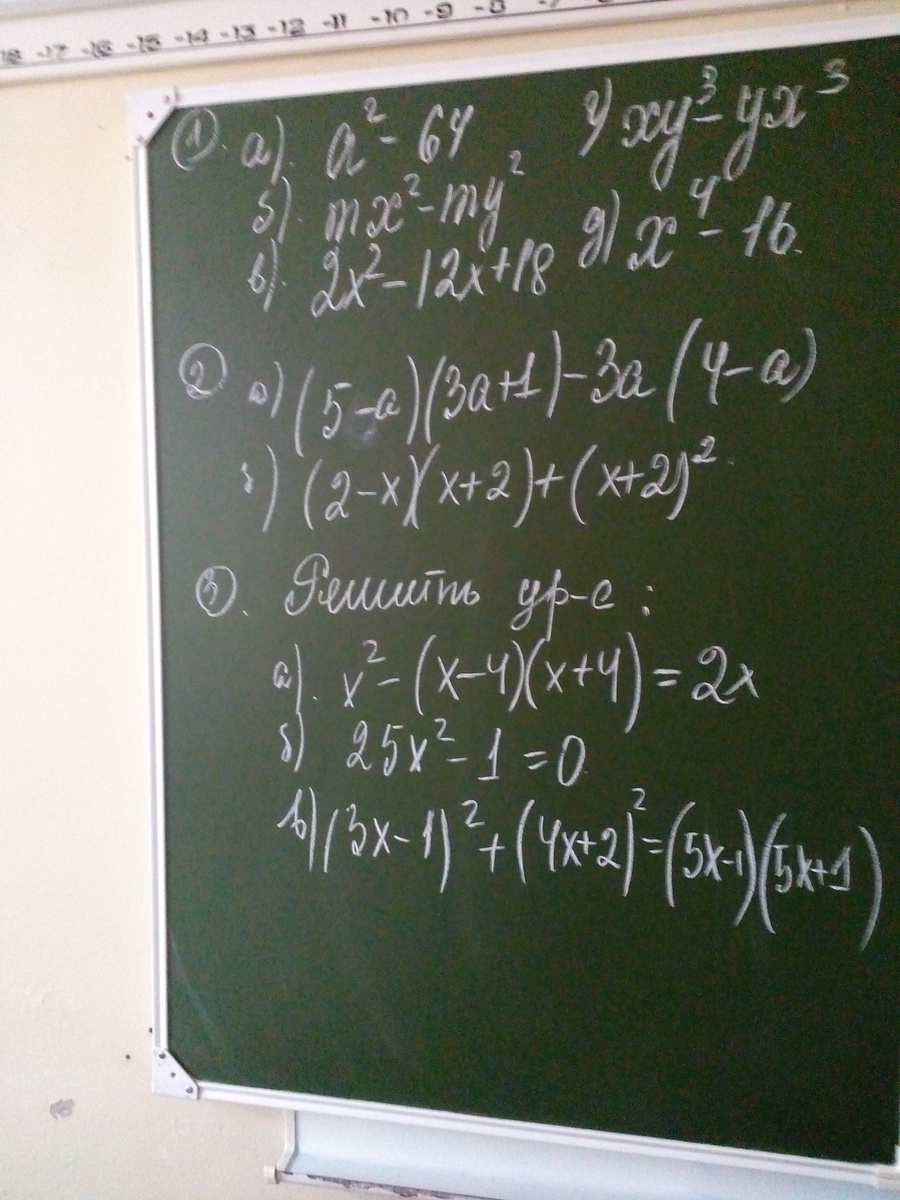 18 -17 -16 -15 -14 -13 -12 -11 -10 -9 -8 -7
① а). a² - 64 г) xy³ - yx³
б). mx² - my² д) x⁴ - 16
в). 2x² - 12x + 18
② а) (5 - a)(3a + 1) - 3a (4 - a)
б) (2 - x)(x + 2) + (x + 2)²
③. Решить ур-е :
а). x² - (x - 4)(x + 4) = 2x
б) 25x² - 1 = 0
в) (3x - 1)² + (4x + 2)² = (5x - 1)(5x + 1)